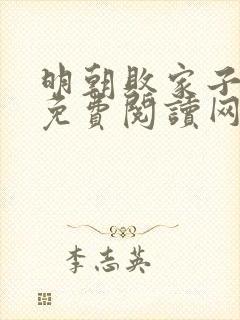 明朝敗家子
免費閱讀网
李志英